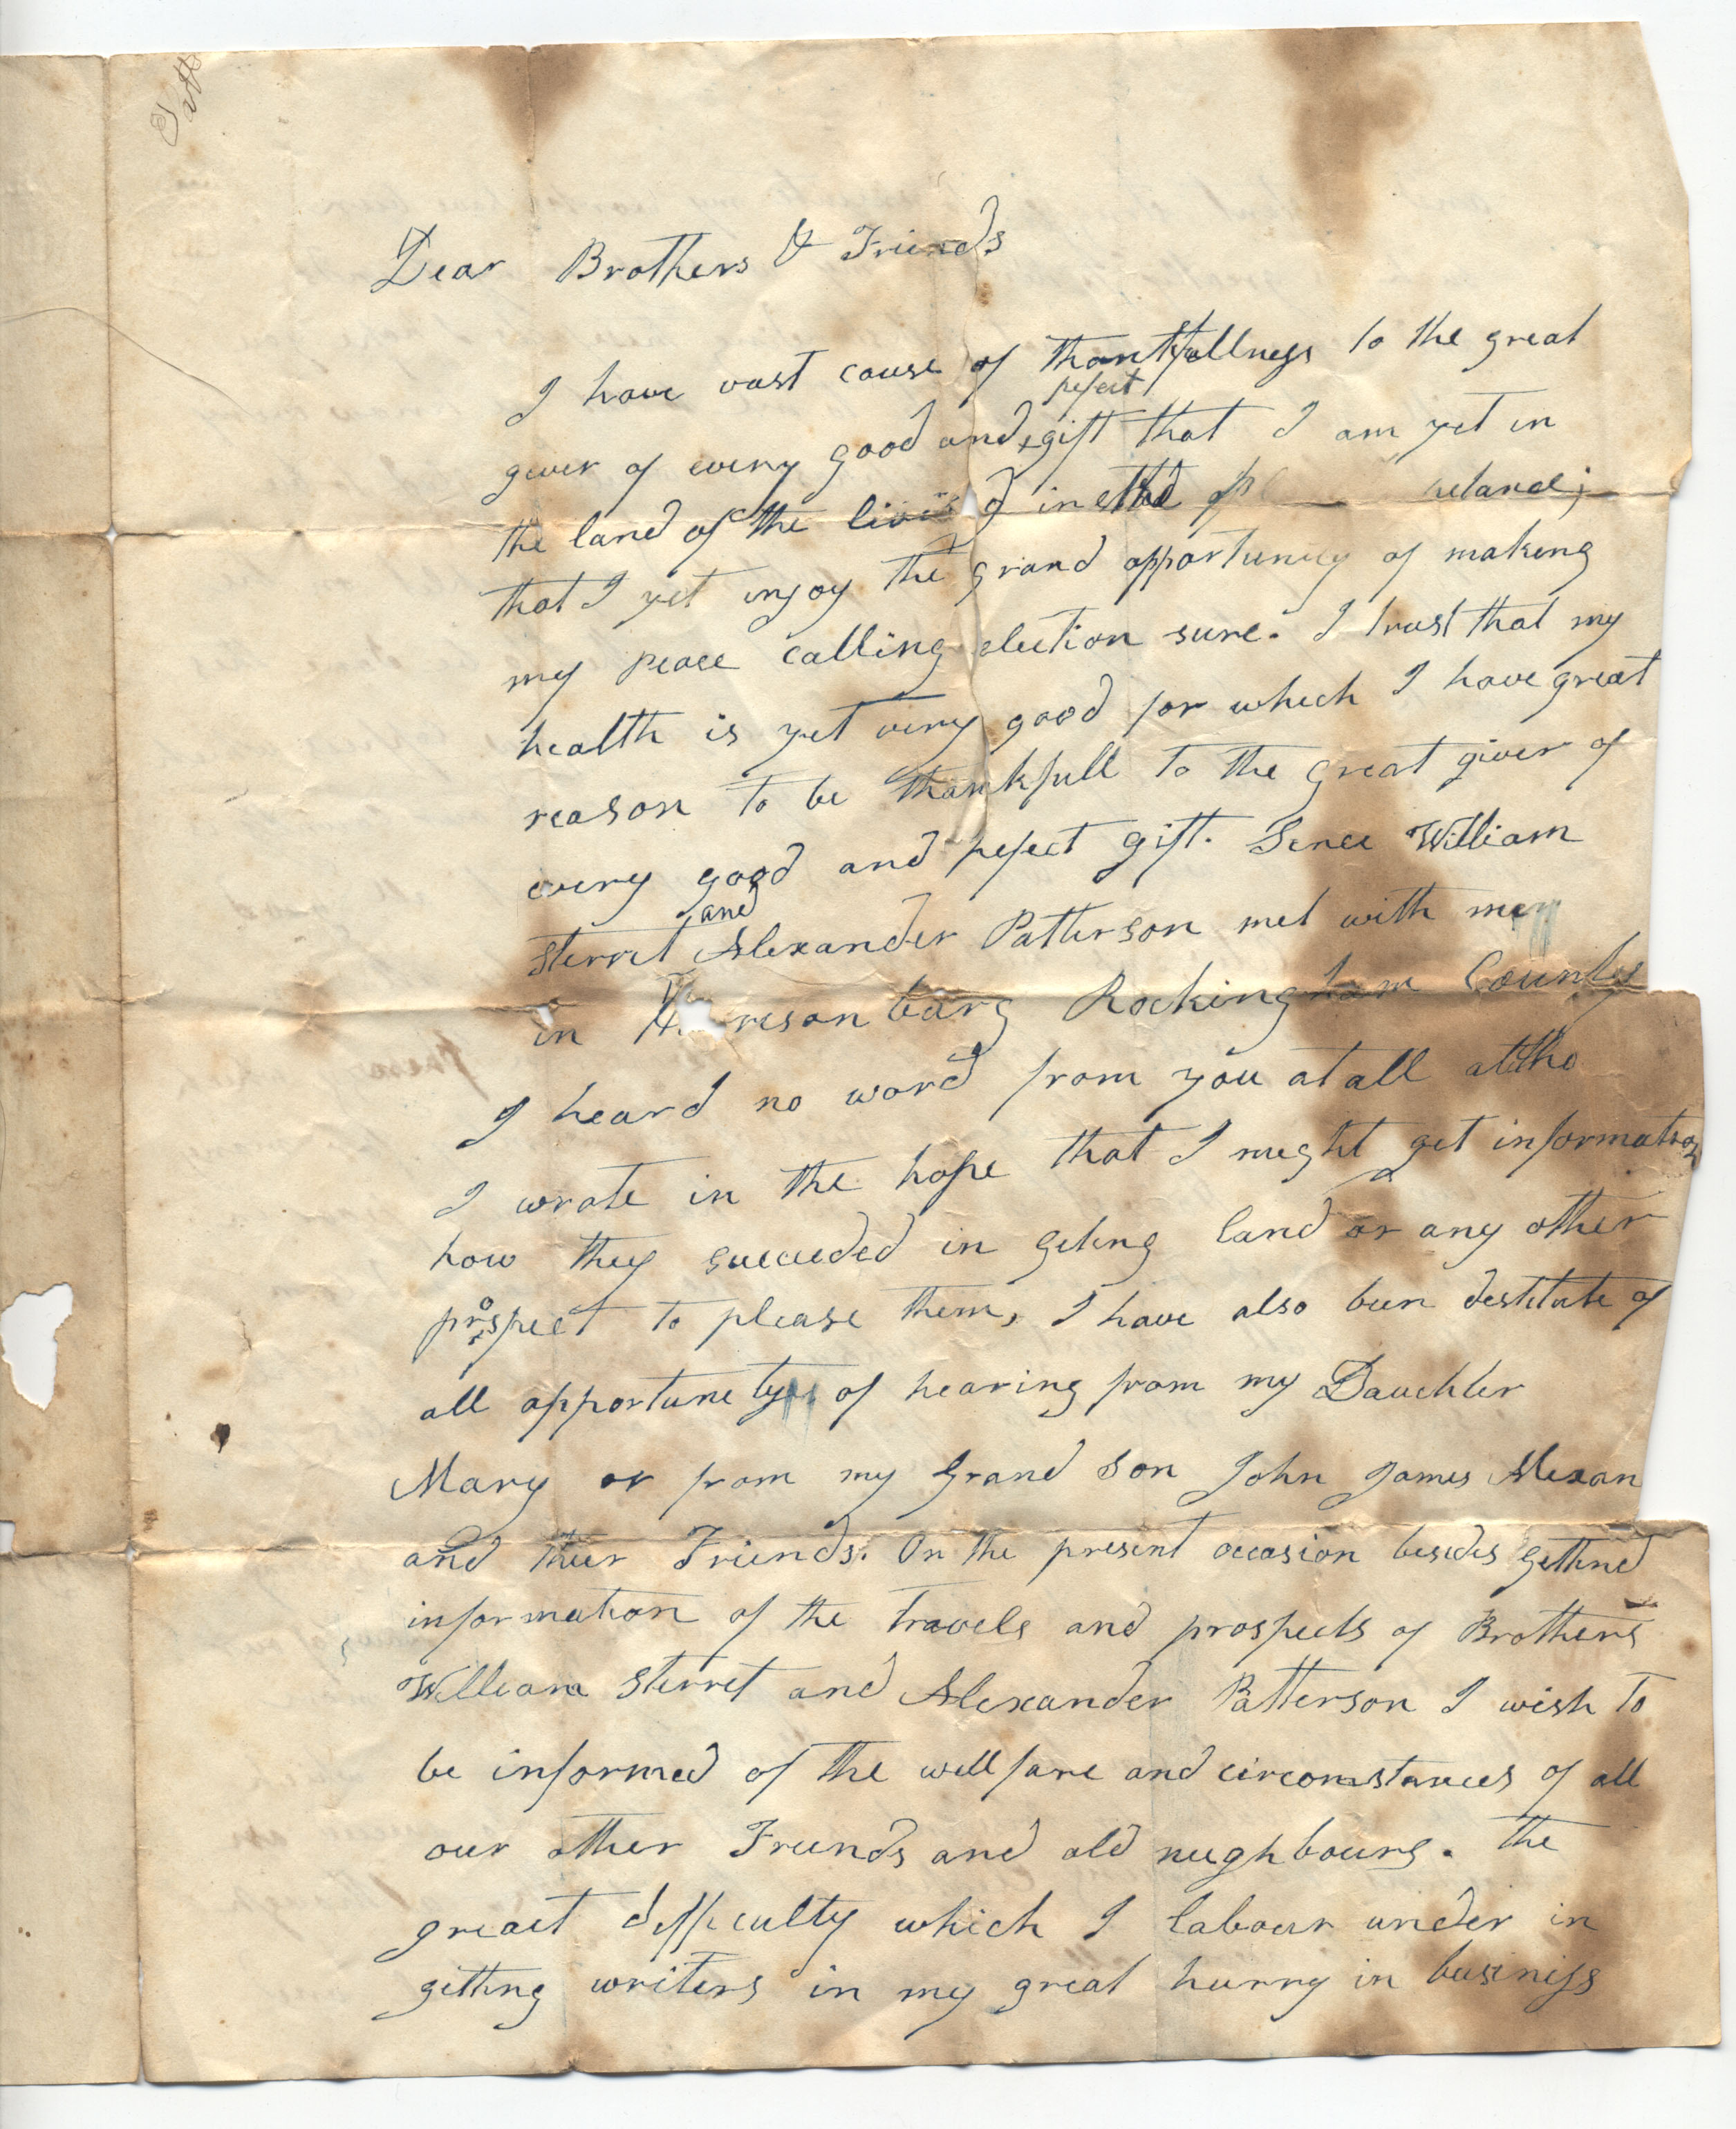 Patt
Dear Brothers & Friends
I have vast cause of thankfullness to the great
pefect
giver of every good and gift that I am yet in
the land of the in the
that I yet enjoy the grand opportunity of making
my peace calling election sure. I trust that my
health is yet very good for which I have great
reason to be thankfull to the great giver of
every good and pefect gift. Sence William
and
Sterret Alexander Patterson met with me
in Harresonbarg Rockingham County
I heard no word from you at all altho
I wrote in the hope that I meght get information
how they succeeded in geteng land or any other
prospect to please them, I have also been destitute of
all opportunety of hearing from my Dauchter
Mary or from my Grand son John James Alexan
and their Friends. On the present occasion besides gettend
information of the travels and prospects of Brothers
William Sterret and Alexander Patterson I wish to
be informed of the wellfare and circomstances of all
our other Friends and old neighbours. The
greact deffeculty which I labour under in
getting writers in my great hurry in business